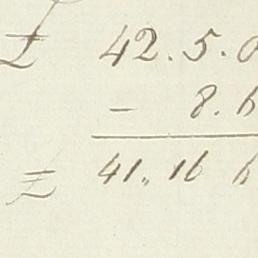 £ 42.5.0
- 8.6
£ 41,, 16 6